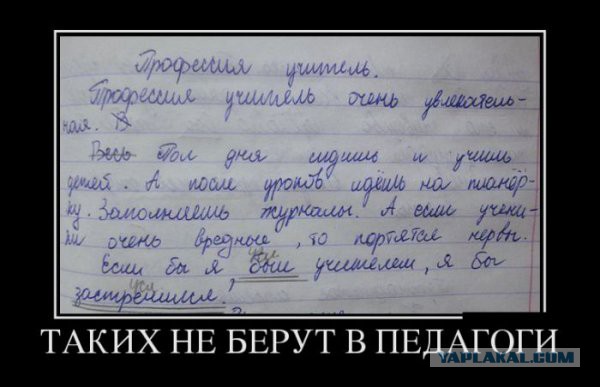 Профессия учитель.
Профессия учитель очень увлекатель-
ная. В
Весь Пол дня сидишь и учишь
детей. А после уроков идёшь на планёр-
ку. Заполняешь журналы. А если учени-
ки очень вредные, то портятся нервы.
Если бы я был учителем, я бы
застрелился.
ТАКИХ НЕ БЕРУТ В ПЕДАГОГИ
YAPLAKAL.COM